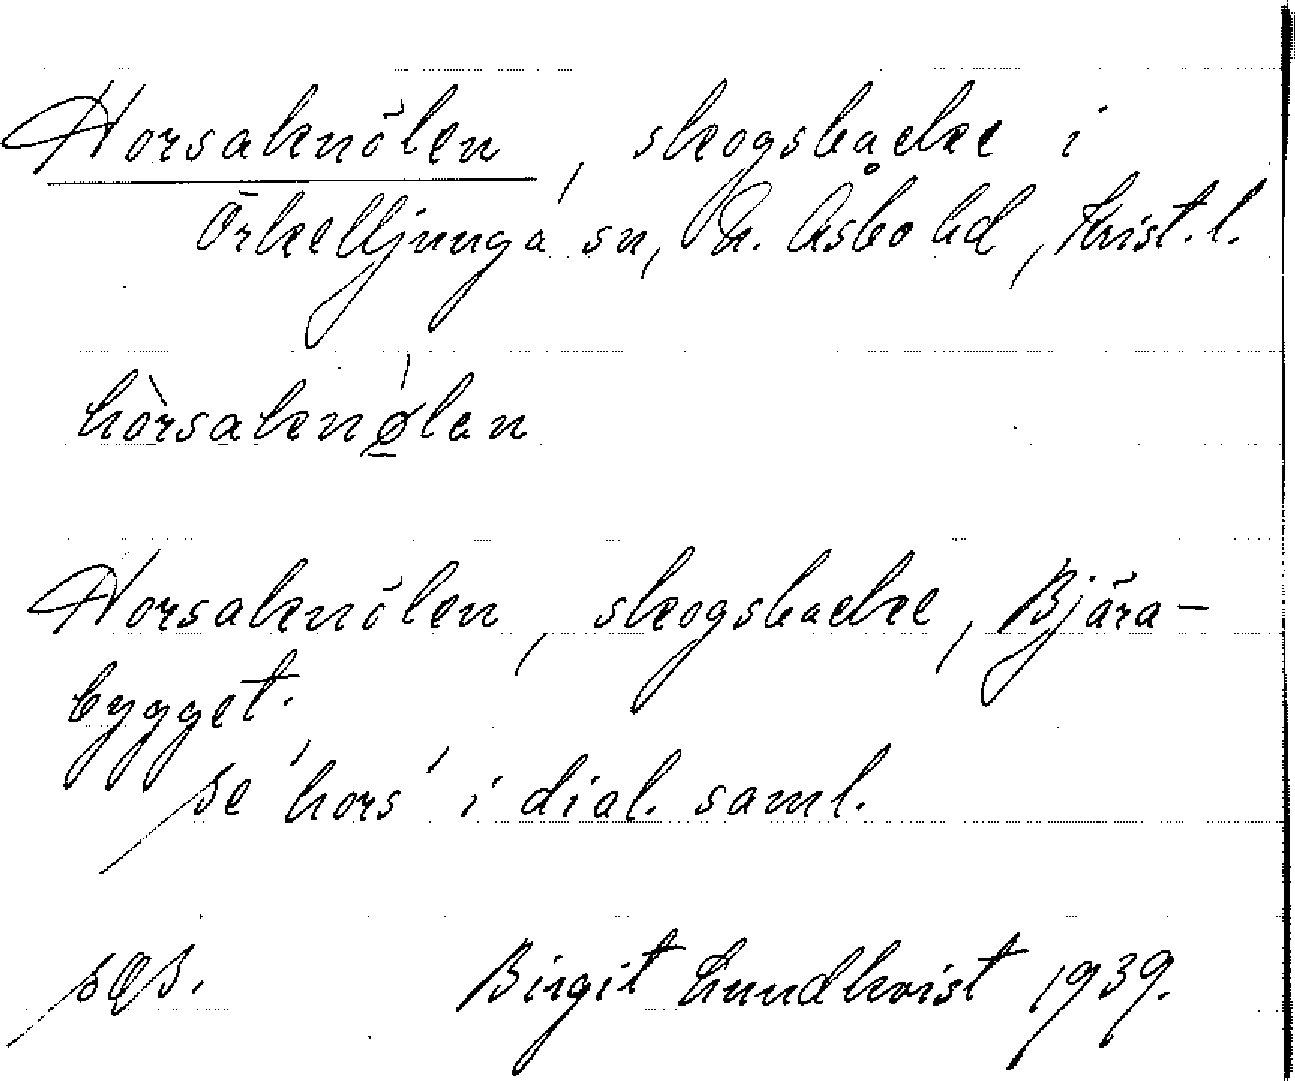 Horsaknölen, skogsbacke i
Örkelljunga sn, N. Åsbo hd, Krist. l.
hòrsaknǿlan
Horsaknölen, skogsbacke, Bjära-
bygget.
se 'hors' i dial. saml.
Birgit Lundkvist 1939.